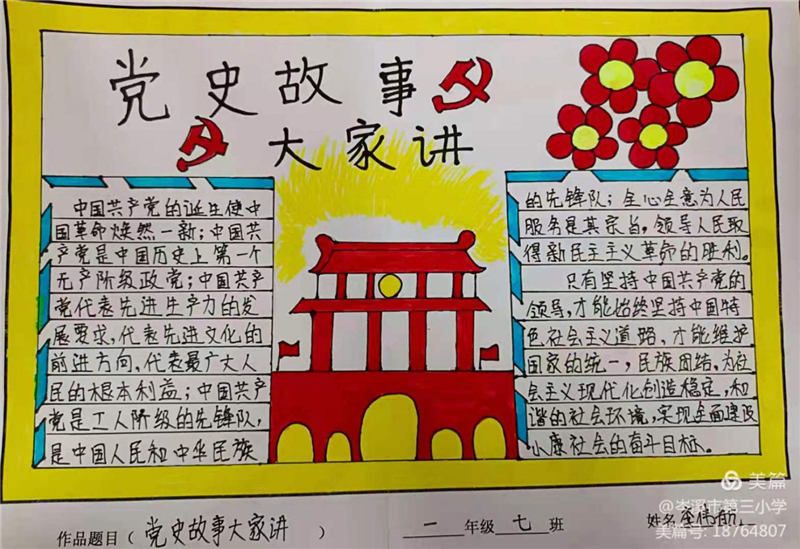 党史故事
大家讲
中国共产党的诞生使中
国革命焕然一新；中国共
产党是中国历史上第一个
无产阶级政党；中国共产
党代表先进生产力的发
展要求，代表先进文化的
前进方向，代表最广大人
民的根本利益；中国共产
党是工人阶级的先锋队，
是中国人民和中华民族
的先锋队；全心全意为人民
服务是其宗旨，领导人民取
得新民主主义革命的胜利。
只有坚持中国共产党的
领导，才能始终坚持中国特
色社会主义道路，才能维护
国家的统一，民族团结，为社
会主义现代化创造稳定，和
谐的社会环境，实现全面建设
小康社会的奋斗目标。
作品题目（党史故事大家讲）
二年级七班
姓名
美篇
@岑溪市第三小学
美篇号: 18764807